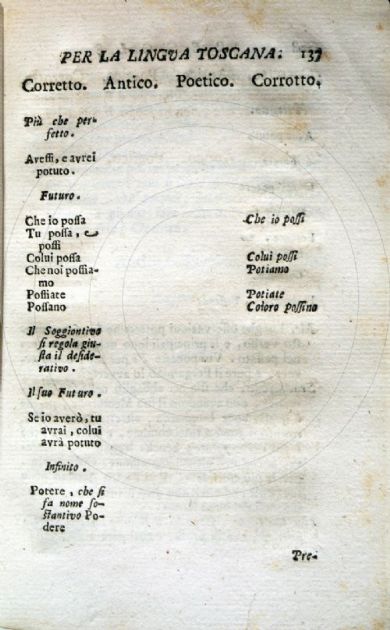 PER LA LINGVA TOSCANA. 137
Corretto. Antico. Poetico. Corrotto.
Più che per-
fetto.
Avessi, e avrei
potuto.
Futuro.
Che io possa Che io possi
Tu possa, e
possi
Colui possa Colui possi
Che noi possia- Potiamo
mo
Possiate Potiate
Possano Coloro possino
Il Soggiontivo
si regola giu-
sta il deside-
rativo.
Il suo Futuro.
Se io averò, tu
avrai, colui
avrà potuto
Infinito.
Potere, che si
fa nome so-
stantivo Po-
dere
Pre-